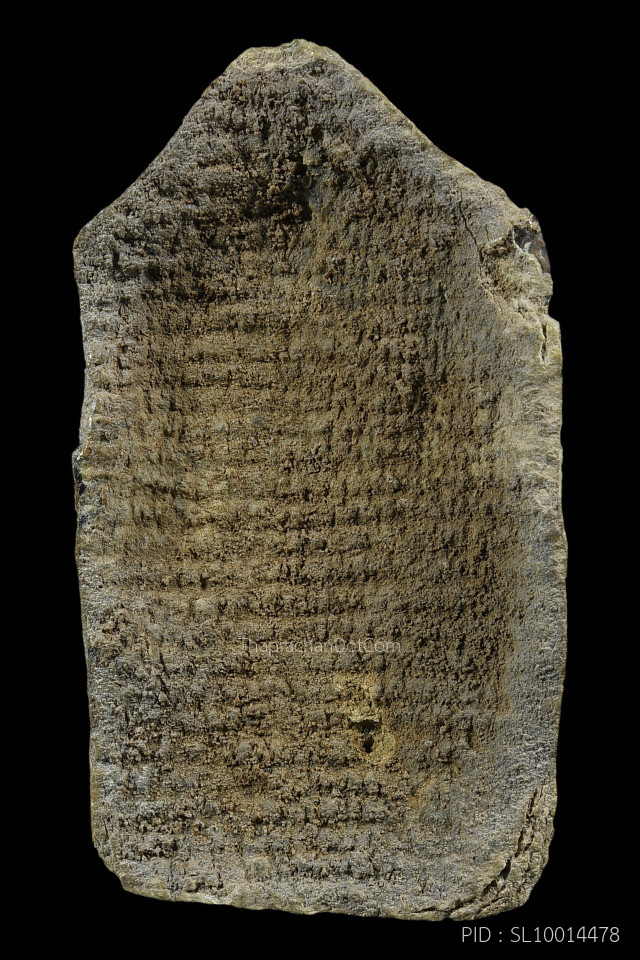 ThaprachanDotCom
PID : SL10014478